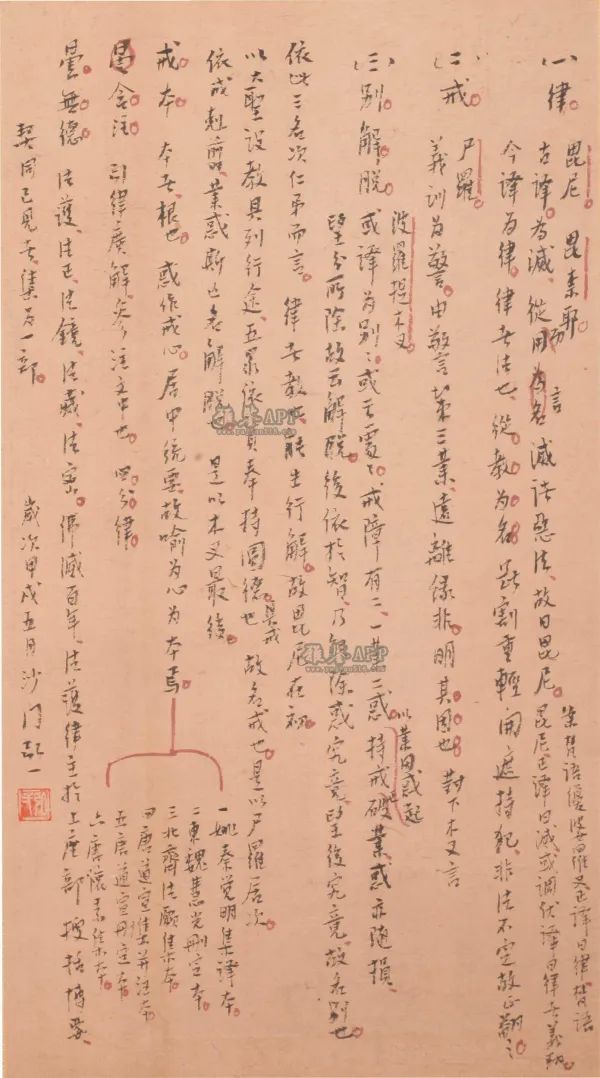 (一)律。
毘尼 毘奈耶
古譯為滅，從用而言為名。滅諸惡法，故曰毘尼。
梵語優婆羅叉正譯曰律
毘尼正譯曰滅或調伏譯曰律者義翻
今譯為律。律者法也，從教為名。斷割重輕開遮持犯，非法不定故正翻之
(二)戒。
尸羅
義訓為警。由警策三業，遠離緣非，明其因也 對下木叉言
(三)別解脫。
波羅提木叉
或譯為別別或云處處。戒障有二，一業二惑 以業因惑起 持戒破業惑亦隨損、
望分所除故云解脫。後依於智，乃解除惑究竟。望後究竟，故名別也。
依此三名次位而言。律者教也，能生行解。故毘尼在初
以大聖設教具列行途、五眾依具奉持圓德具戒也。故名戒也。是以尸羅居次。
依戒起業惑斯亡名解脫也。是以木叉最後
戒本 本者根也。或作戒心。居中統要故喻為心為本焉
一姚秦覺明集譯本。
二東魏慧光刪定本
三北齊法願集本。
四唐道宣集并注本
五唐道宣刪定本。
六唐懷素集本。
含注 引律廣解，參注文中也。四分律。
曇無德。法護、法正、法鏡、法藏、法密。佛滅百年、法護律主於上座部搜括博要、
契同己見者集為一部。
歲次甲戌五月沙門弘一